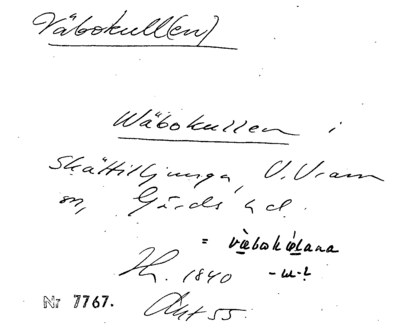 Väbokull(en)
Wäbokullen i
Skättilljunga, V. Vram
sn, Gärds hd.
= väbokúlana
Hn. 1840 - u - ?
Nr 7767. Akt 55